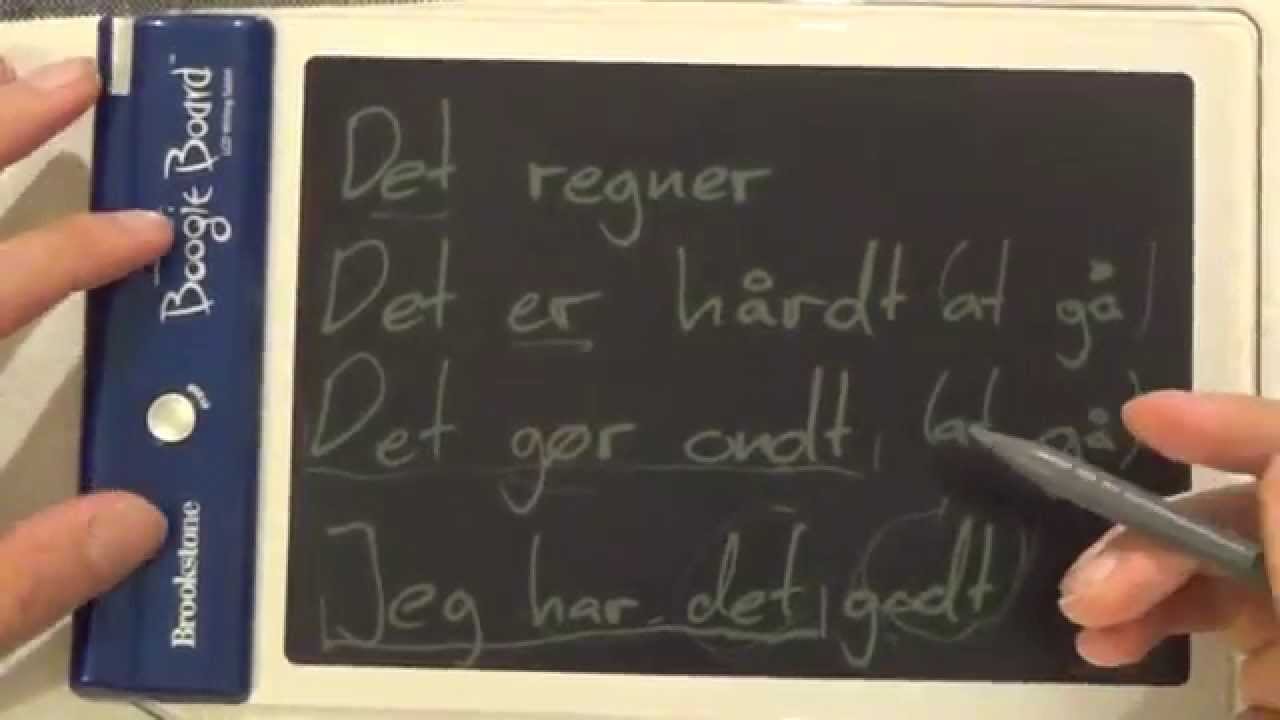 Boogie Board™
LCD writing tablet
Brookstone
Det regner
Det er hårdt (at gå)
Det gør ondt, (at gå)
Jeg har det godt